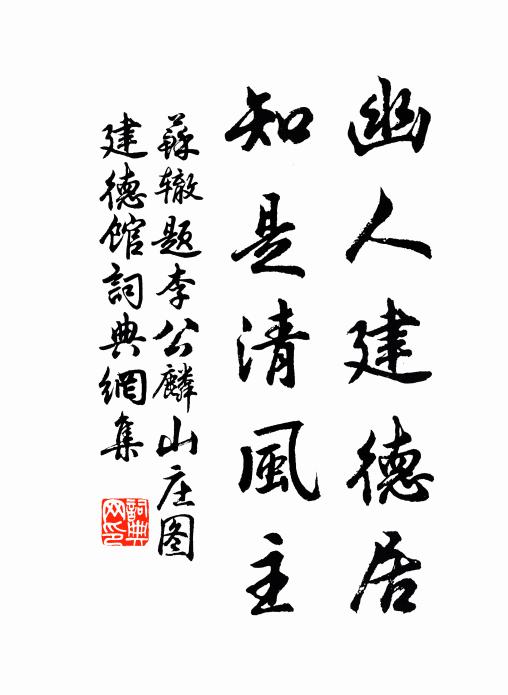 幽人建德居
知是清風主
蘇辙题李公麟山庄图
建德馆詞典網集
詞典网印